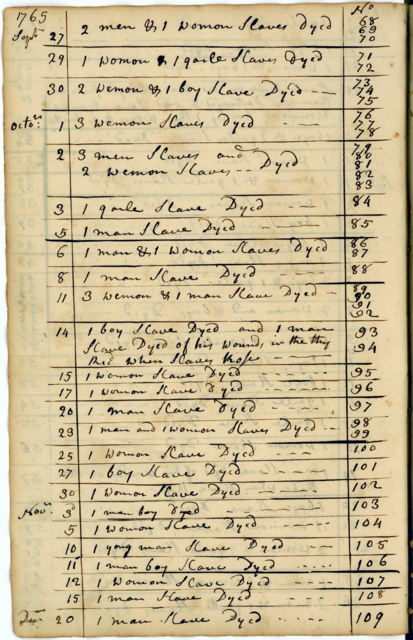 1765 No
Sept 27 2 men & 1 womon Slaves Dyed 68
69
70
29 1 womon & 1 garle Slaves Dyed 71
72
30 2 wemon & 1 boy Slave Dyed 73
74
75
Octobr 1 3 wemon Slaves Dyed 76
77
78
2 3 men Slaves and 79
2 wemon Slaves Dyed 80
81
82
83
3 1 garle Slave Dyed 84
5 1 man Slave Dyed 85
6 1 man & 1 womon Slaves Dyed 86
87
8 1 man Slave Dyed 88
11 3 wemon & 1 man Slave Dyed 89
90
91
92
14 1 boy Slave Dyed and 1 man 93
Slave Dyed of his wounds in the 94
when Slaves Rose
15 1 womon Slave Dyed 95
17 1 womon Slave Dyed 96
20 1 man Slave Dyed 97
23 1 man and 1 womon Slaves Dyed 98
99
25 1 womon Slave Dyed 100
27 1 boy Slave Dyed 101
30 1 womon Slave Dyed 102
Novr. 3d 1 man boy Dyed 103
5 1 womon Slave Dyed 104
10 1 yong man Slave Dyed 105
11 1 man boy Slave Dyed 106
12 1 womon Slave Dyed 107
15 1 man Slave Dyed 108
20 1 man Slave Dyed 109